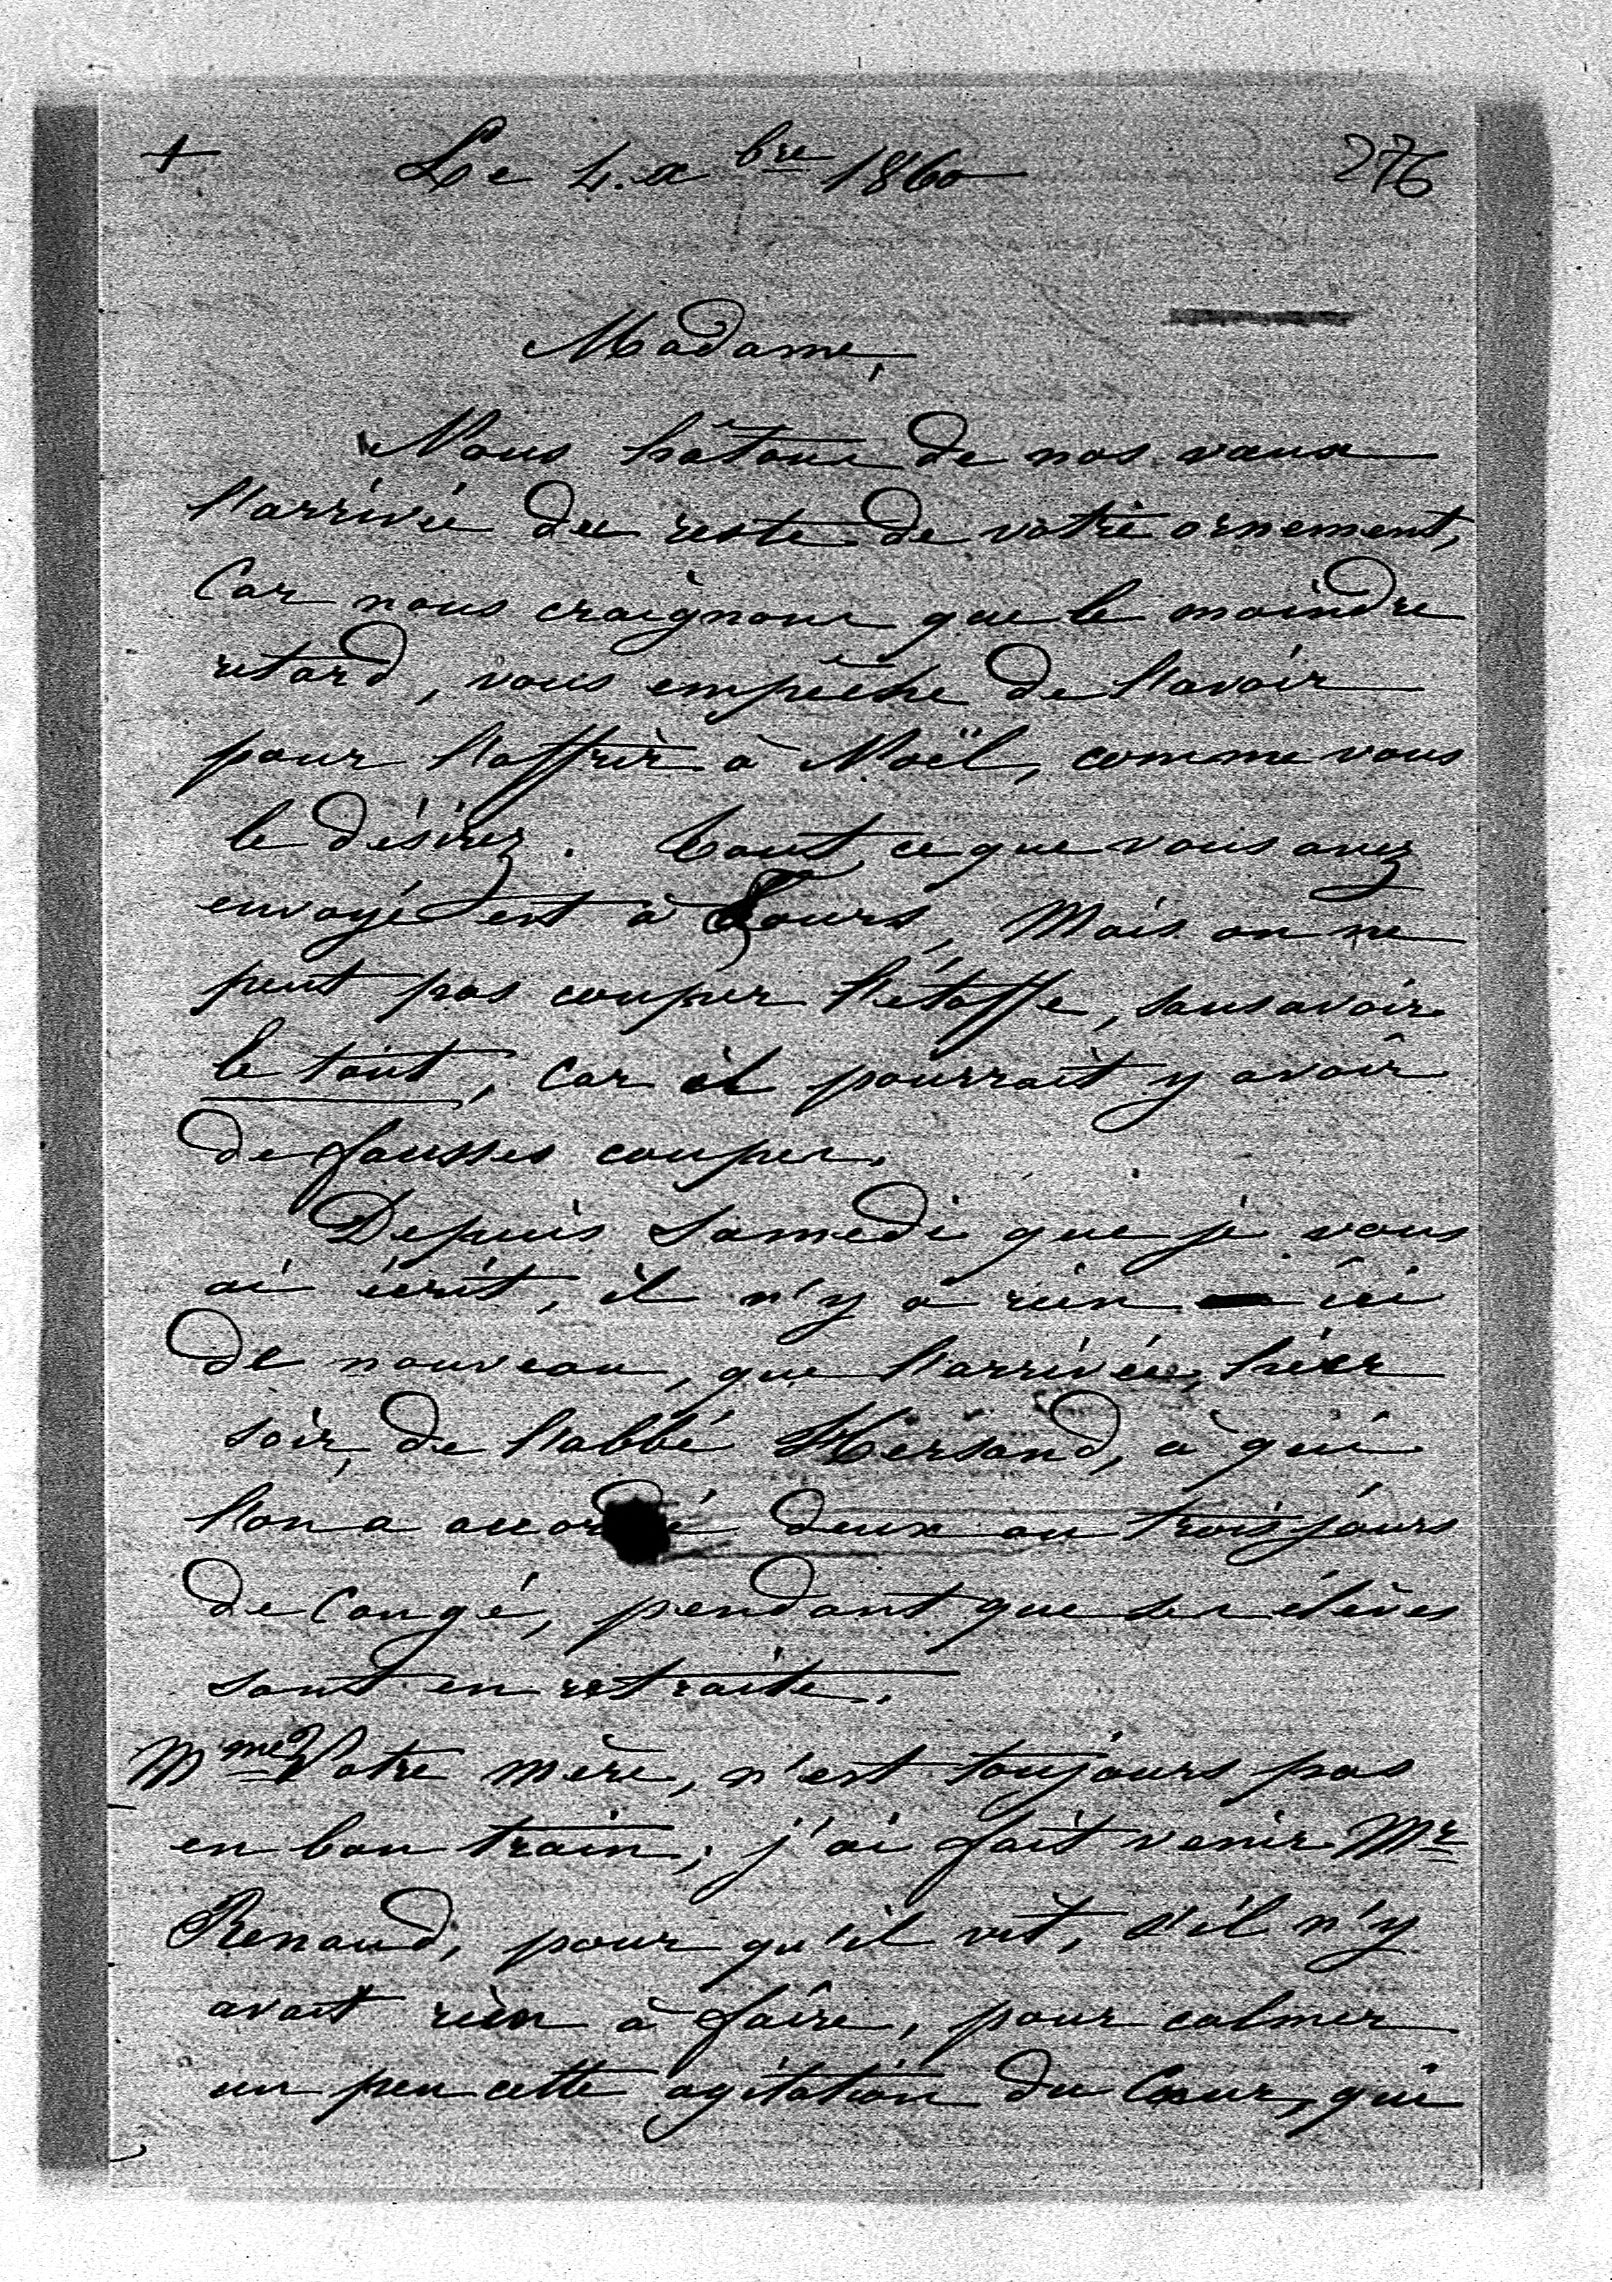 + Le 4. xbre 1860 276
Madame,
Nous hâtons de nos vœux
l'arrivée du reste de votre ornement,
Car nous craignons que le moindre
retard, vous empêche de l'avoir
pour l'offrir à Noël, comme vous
le désirez. Tout ce que vous avez
envoyé est à Tours, Mais on ne
peut pas couper l'étoffe, sans avoir
le tout, Car il pourrait y avoir
de fausses coupes.
Depuis Samedi que je vous
ai écrit, il n'y a rien ici
de nouveau, que l'arrivée, hier
soir, de l'abbé Hersand, à qui
l'on a accordé deux ou trois jours
de Congé, pendant que ses élèves
sont en retraite.
Mme Votre mère, n'est toujours pas
en bon train; j'ai fait venir Mr
Renaud, pour qu'il vît, s'il n'y
avait rien à faire, pour calmer
un peu cette agitation du Cœur, qui